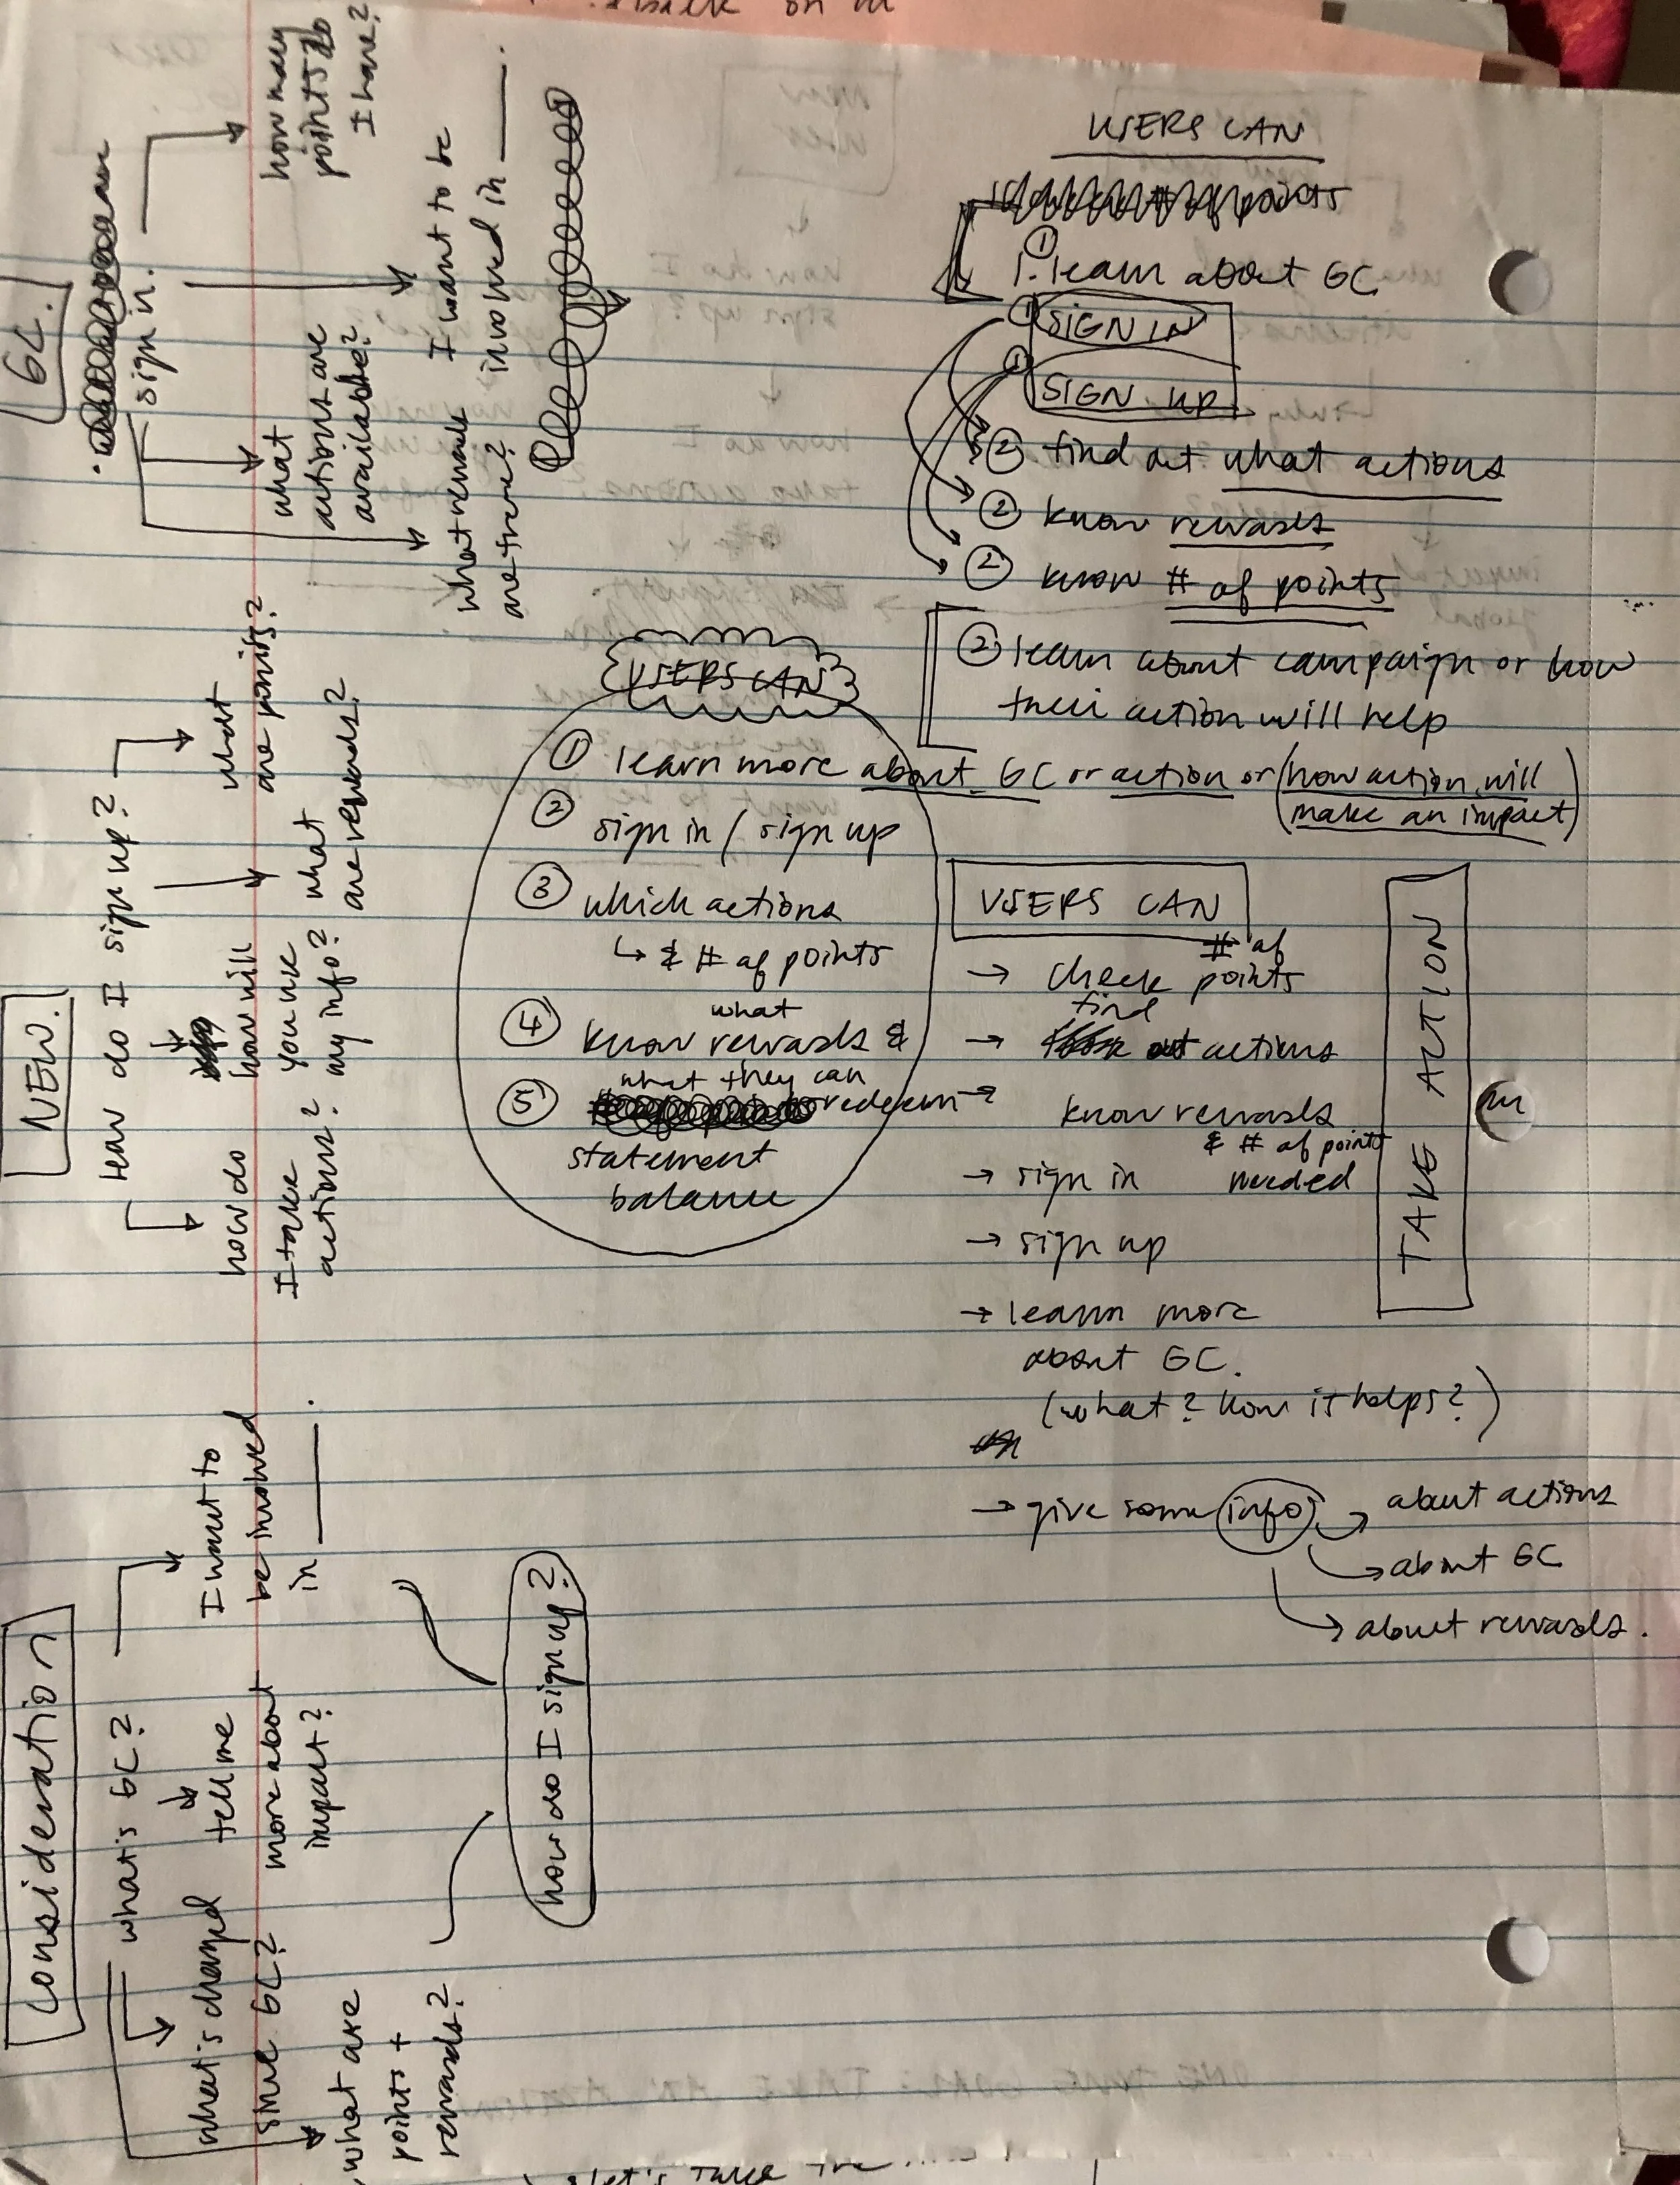 back on
USERS CAN
points
① 1. learn about GC
① SIGN IN
① SIGN UP
② find out what actions
② know rewards
② know # of points
② learn about campaign or how
their action will help
USERS CAN
① learn more about GC or action or (how action will
make an impact)
② sign in / sign up
③ which actions
↳ & # of points
④ know what rewards &
⑤ what they can redeem
statement
balance
USERS CAN
→ check # of points
→ find actions
→ know rewards
& # of points
needed
→ sign in
→ sign up
→ learn more
about GC.
(what? how it helps?)
→ give some info → about actions
→ about GC
→ about rewards.
TAKE ACTION
consideration
what's GC?
what's changed
since GC?
what are
points +
rewards?
tell me
more about
impact?
I want to
be involved
in ____.
how do I sign up?
NEW.
how do I sign up?
how do
I take
actions?
how will
you use
my info?
what
are rewards?
what
are points?
GC.
sign in.
what rewards
are there?
what
actions are
available?
I want to be
involved in ____.
how many
points do
I have?
let's take the